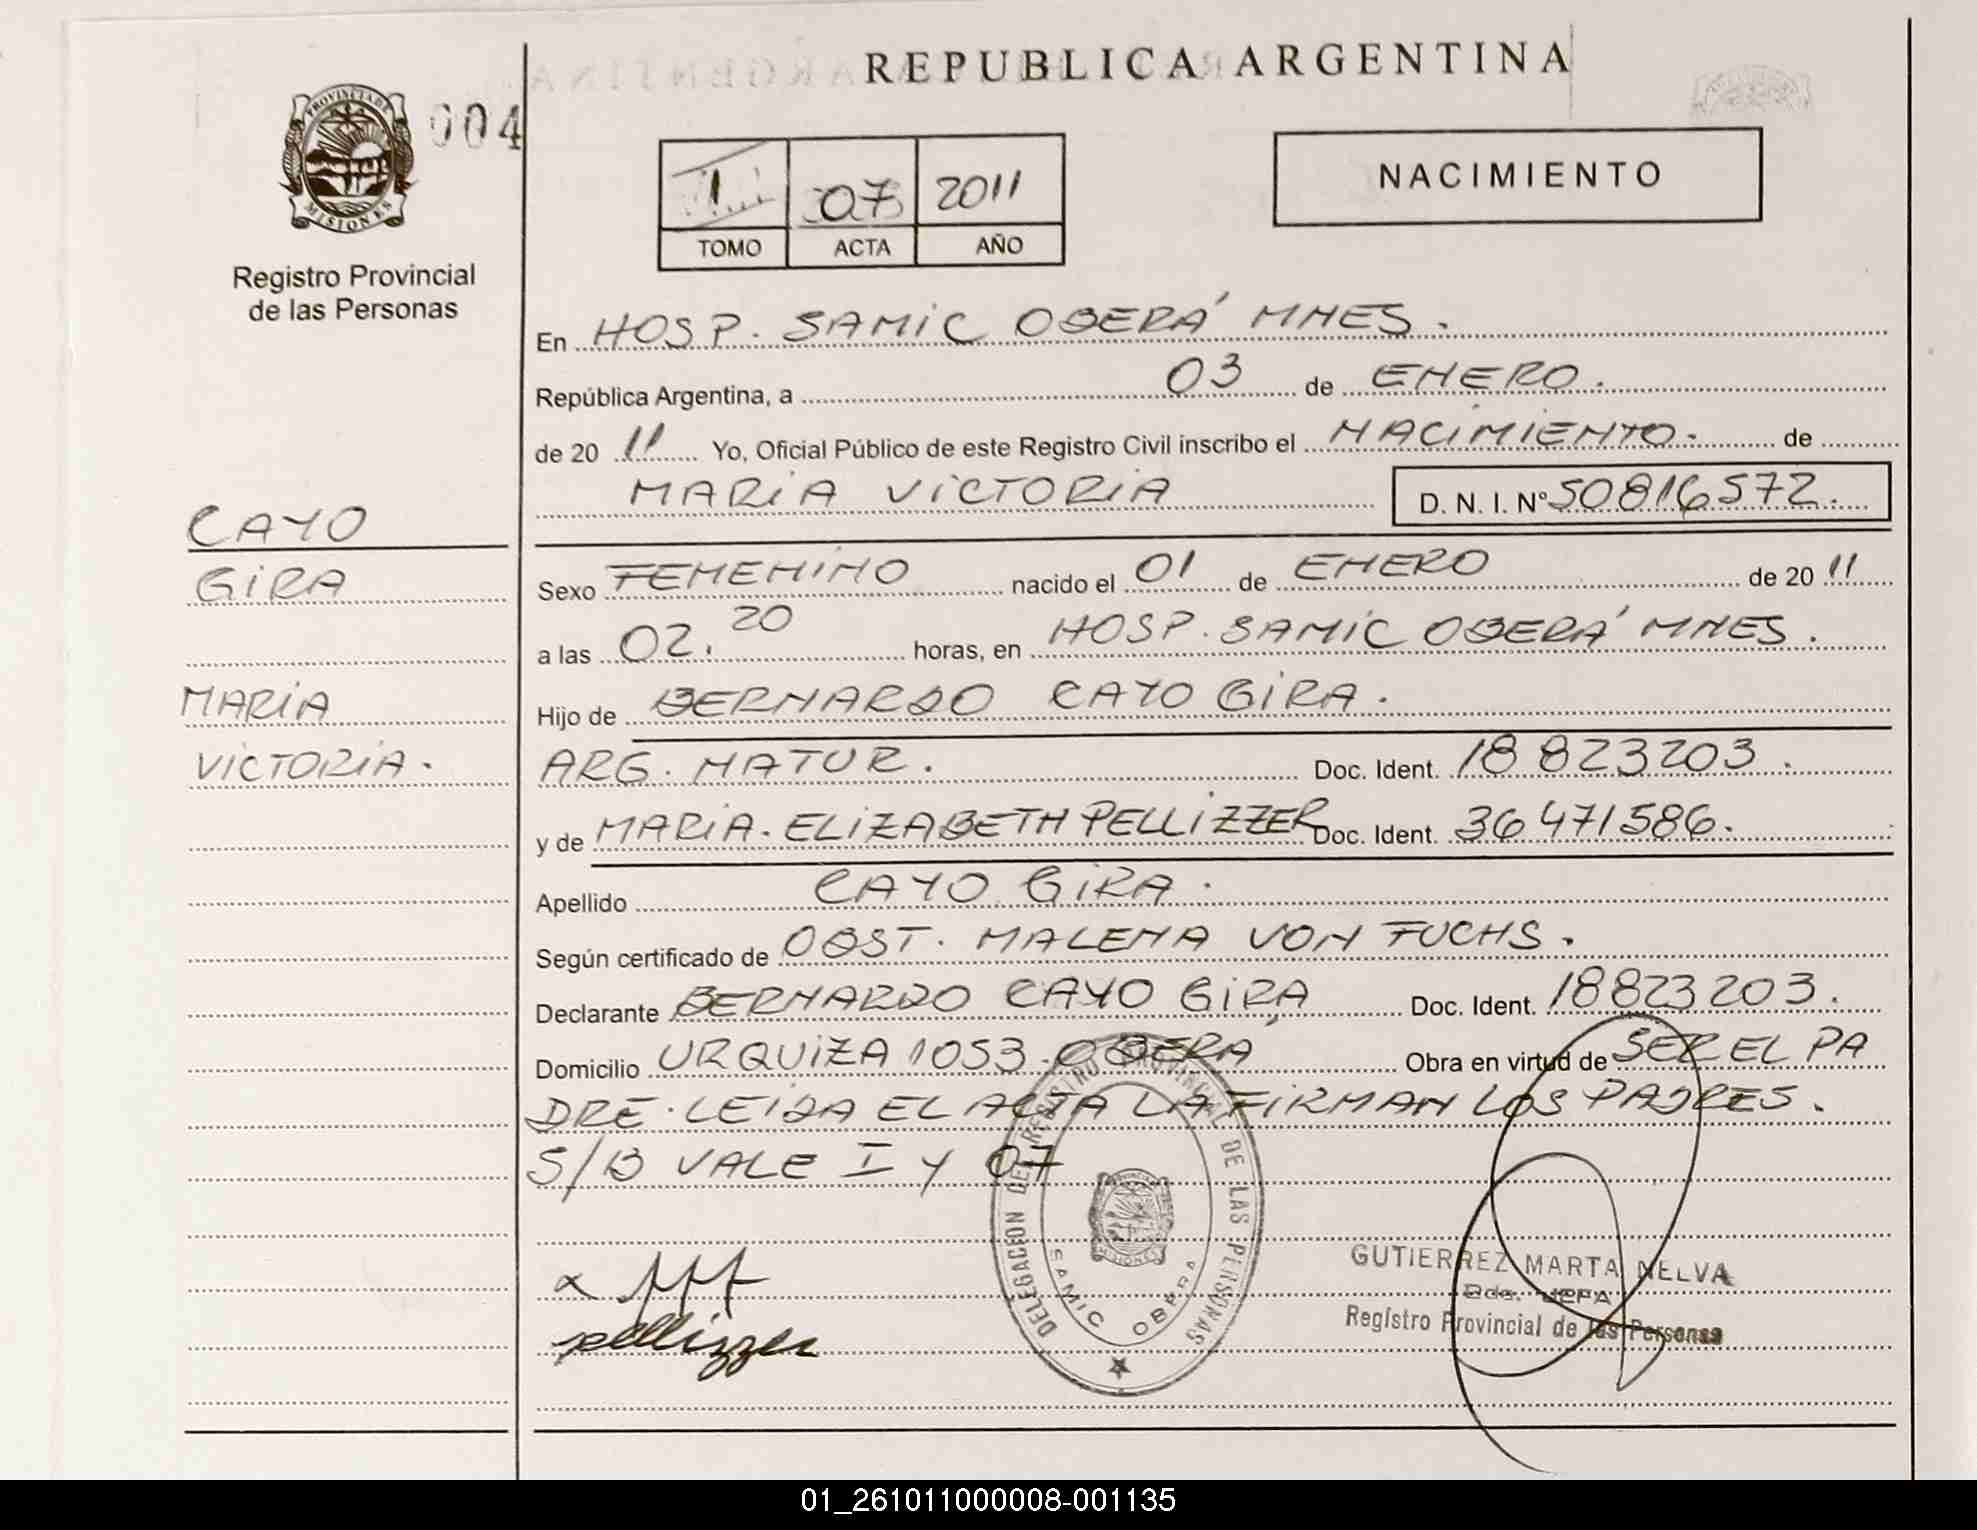 REPUBLICA ARGENTINA
PROVINCIA DE
MISIONES
004
Registro Provincial
de las Personas
1 07 2011
TOMO ACTA AÑO
NACIMIENTO
En HOSP. SAMIC OBERÁ MNES.
República Argentina, a 03 de ENERO.
de 20 11 Yo, Oficial Público de este Registro Civil inscribo el NACIMIENTO. de
MARIA VICTORIA D. N. I. N° 50816572.
CAYO
GIRA
MARIA
VICTORIA.
Sexo FEMENINO nacido el 01 de ENERO de 20 11
a las 02.20 horas, en HOSP. SAMIC OBERÁ MNES.
Hijo de BERNARDO CAYO GIRA.
ARG. NATUR. Doc. Ident. 18 823203.
y de MARIA. ELIZABETH PELLIZZER Doc. Ident. 36471586.
Apellido CAYO GIRA.
Según certificado de OBST. MALENA VON FUCHS.
Declarante BERNARDO CAYO GIRA Doc. Ident. 18823203.
Domicilio URQUIZA 1053. OBERÁ Obra en virtud de SER EL PA
DRE. LEIDA EL ACTA LA FIRMAN LOS PADRES.
S/B VALE I Y 07
DELEGACION DEL REGISTRO PROVINCIAL DE LAS PERSONAS
SAMIC OBERA
pellizzer
GUTIERREZ MARTA NELVA
JEFA
Registro Provincial de las Personas
01_261011000008-001135